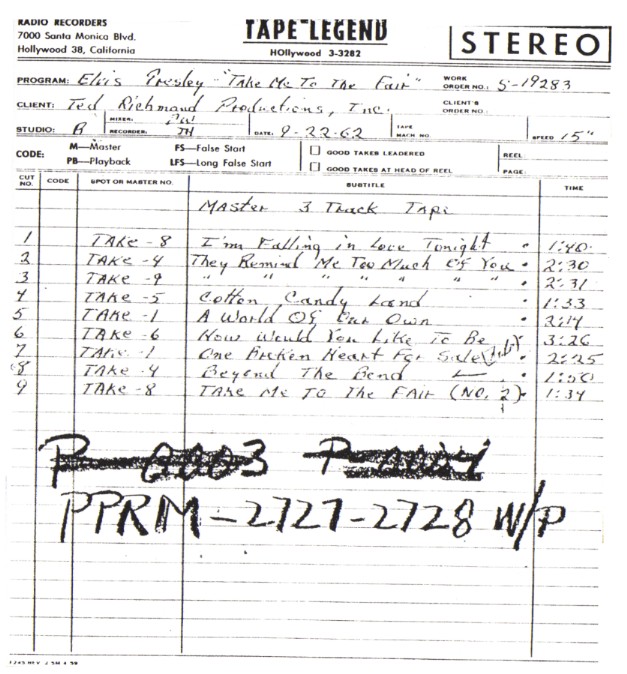 RADIO RECORDERS
7000 Santa Monica Blvd.
Hollywood 38, California
TAPE LEGEND
HOllywood 3-3282
STEREO
PROGRAM: Elvis Presley - "Take Me To The Fair" WORK ORDER NO.: S-19283
CLIENT: Ted Richmond Productions, Inc. CLIENT'S ORDER NO.:
STUDIO: B MIXER: RECORDER: DATE: 9-22-62 TAPE MACH NO. SPEED 15"
CODE: M—Master FS—False Start GOOD TAKES LEADERED REEL
PB—Playback LFS—Long False Start GOOD TAKES AT HEAD OF REEL PAGE
CUT NO. CODE SPOT OR MASTER NO. SUBTITLE TIME
Master 3 Track Tape
1 TAKE -8 I'm Falling in Love Tonight 1:40
2 TAKE -4 They Remind Me Too Much Of You 2:30
3 TAKE -9 " " " " " " " 2:31
4 TAKE -5 Cotton Candy Land 1:33
5 TAKE -1 A World Of Our Own 2:14
6 TAKE -6 How Would You Like To Be 3:26
7 TAKE -1 One Broken Heart For Sale 2:25
8 TAKE -4 Beyond The Bend 1:50
9 TAKE -8 Take Me To The Fair (No. 2) 1:34
PPRM-2727-2728 W/P